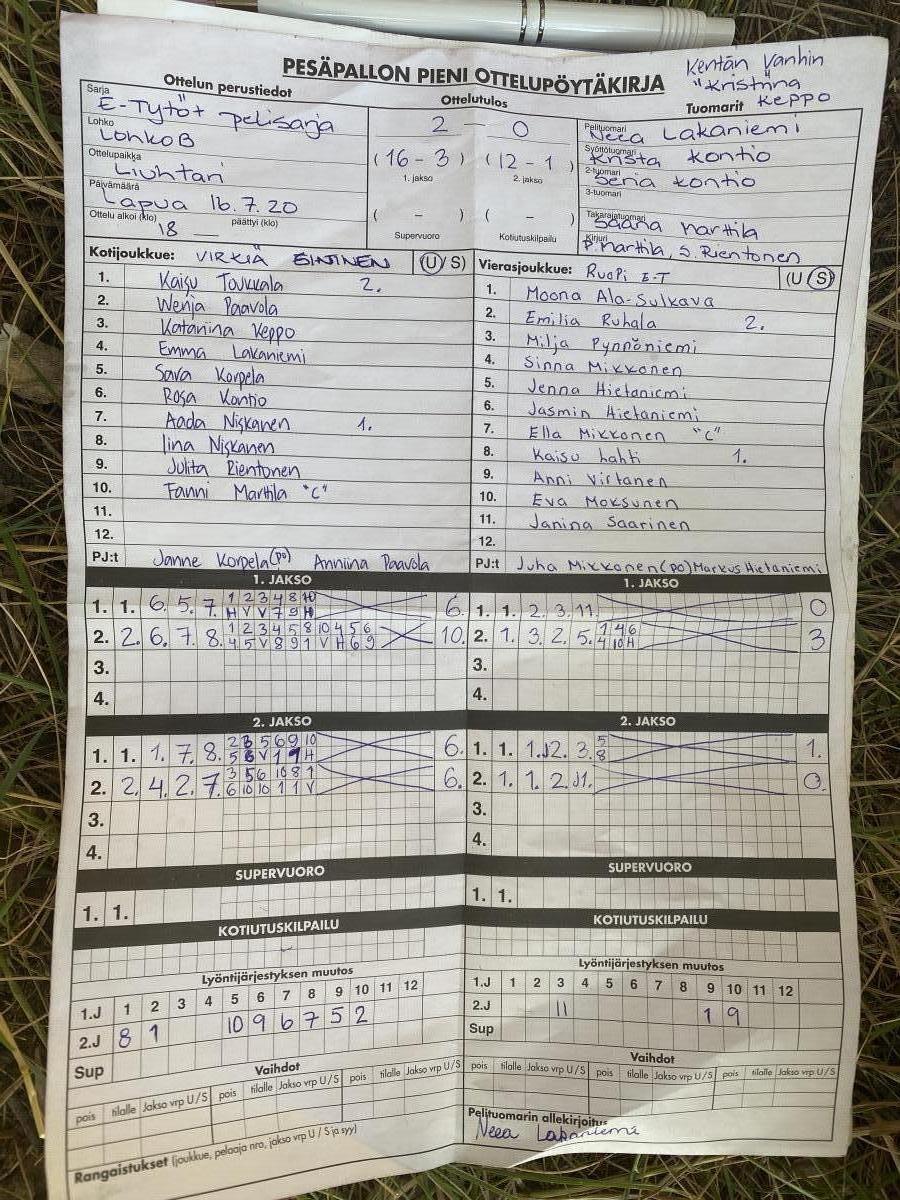 PESÄPALLON PIENI OTTELUPÖYTÄKIRJA
Kentän Vanhin
"Kristiina
Keppo
Ottelun perustiedot
Ottelutulos
Tuomarit
Sarja E-Tytöt pelisarja
Lohko Lohko B
Ottelupaikka Liuhtari
Päivämäärä Lapua 16.7.20
Ottelu alkoi (klo) 18 päättyi (klo)
2 - 0
(16 - 3) (12 - 1)
1. jakso 2. jakso
( - ) ( - )
Supervuoro Kotiutuskilpailu
Pelituomari Neea Lakaniemi
Syöttötuomari Krista Kontio
2-tuomari Kontio
3-tuomari
Takarajatuomari Saana Marttila
Kirjuri P. Marttila, S. Rientonen
Kotijoukkue: VIRKIÄ SININEN (U/S)
1. Kaisu Toukkala 2.
2. Wenja Paavola
3. Katariina Keppo
4. Emma Lakaniemi
5. Sara Korpela
6. Rosa Kontio
7. Aada Niskanen 1.
8. Iina Niskanen
9. Julita Rientonen
10. Fanni Marttila "C"
11.
12.
PJ:t Janne Korpela (po) Anniina Paavola
Vierasjoukkue: RuoPi E-T (U/S)
1. Moona Ala-Sulkava
2. Emilia Ruhala 2.
3. Milja Pynnöniemi
4. Sinna Mikkonen
5. Jenna Hietaniemi
6. Jasmin Hietaniemi
7. Ella Mikkonen "C"
8. Kaisu Lahti 1.
9. Anni Virtanen
10. Eva Moksunen
11. Janina Saarinen
12.
PJ:t Juha Mikkonen (po) Markus Hietaniemi
1. JAKSO
1. 1. 6. 5. 7. 1 2 3 4 8 10 6.
H V V 7 9 H
2. 2. 6. 7. 8. 1 2 3 4 5 8 10 4 5 6 10.
4 5 V 8 9 1 V H 6 9
3.
4.
1. JAKSO
1. 1. 2. 3. 11. 0
2. 1. 3. 2. 5. 1 4 6 3
4 10 H
3.
4.
2. JAKSO
1. 1. 1. 7. 8. 2 3 5 6 9 10 6.
2. 2. 4. 2. 7. 3 5 6 10 8 1 6.
6 10 10 1 1 V
3.
4.
2. JAKSO
1. 1. 1. 12. 3. 5 1.
8
2. 1. 1. 2. 11. 0.
3.
4.
SUPERVUORO
1. 1.
SUPERVUORO
1. 1.
KOTIUTUSKILPAILU
KOTIUTUSKILPAILU
Lyöntijärjestyksen muutos
1.J 1 2 3 4 5 6 7 8 9 10 11 12
2.J 8 1 10 9 6 7 5 2
Sup
Lyöntijärjestyksen muutos
1.J 1 2 3 4 5 6 7 8 9 10 11 12
2.J 11 1 9
Sup
Vaihdot
pois tilalle Jakso vrp U/S pois tilalle Jakso vrp U/S pois tilalle Jakso vrp U/S
pois tilalle Jakso vrp U/S
Vaihdot
pois tilalle Jakso vrp U/S pois tilalle Jakso vrp U/S pois tilalle Jakso vrp U/S
Rangaistukset (joukkue, pelaaja nro, jakso vrp U / S ja syy)
Pelituomarin allekirjoitus
Neea Lakaniemi